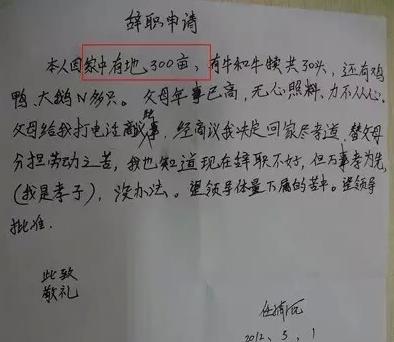 辞职申请
本人因家中有地300亩,有牛和牛犊共30头,还有鸡
鸭、大鹅N多只。父母年事已高,无心照料,力不从心。
父母给我打电话商议事,经商议我决定回家尽孝道,替父母
分担劳动之苦,我也知道现在辞职不好,但万事孝为先
(我是孝子),没办法。望领导体量下属的苦中。望领导
批准。
此致
敬礼
2012.5.1